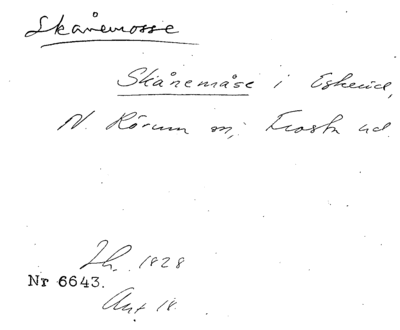 Skånemosse
Skånemåse i Eskeröd,
N. Rörum sn, Frosta hd.
Lh. 1828
Nr 6643.
Akt 18